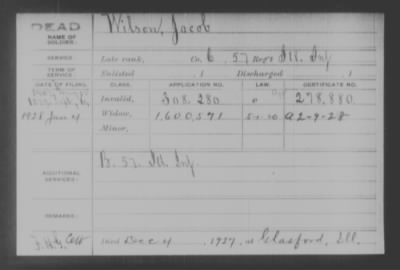 DEAD
NAME OF
SOLDIER:
Wilson, Jacob
SERVICE:
Late rank, Co. C, 57 Reg't Ill. Inf
TERM OF
SERVICE:
Enlisted 1 Discharged 1
DATE OF FILING.
CLASS.
APPLICATION NO.
LAW.
CERTIFICATE NO.
Invalid, 308.280 278.880
1928 Jan 4
Widow, 1,600,571 5-1-20 A 2-9-28
Minor,
ADDITIONAL
SERVICES:
B. 57. Ill. Inf.
REMARKS:
Died Dec 4, 1927, at Glasford, Ill.